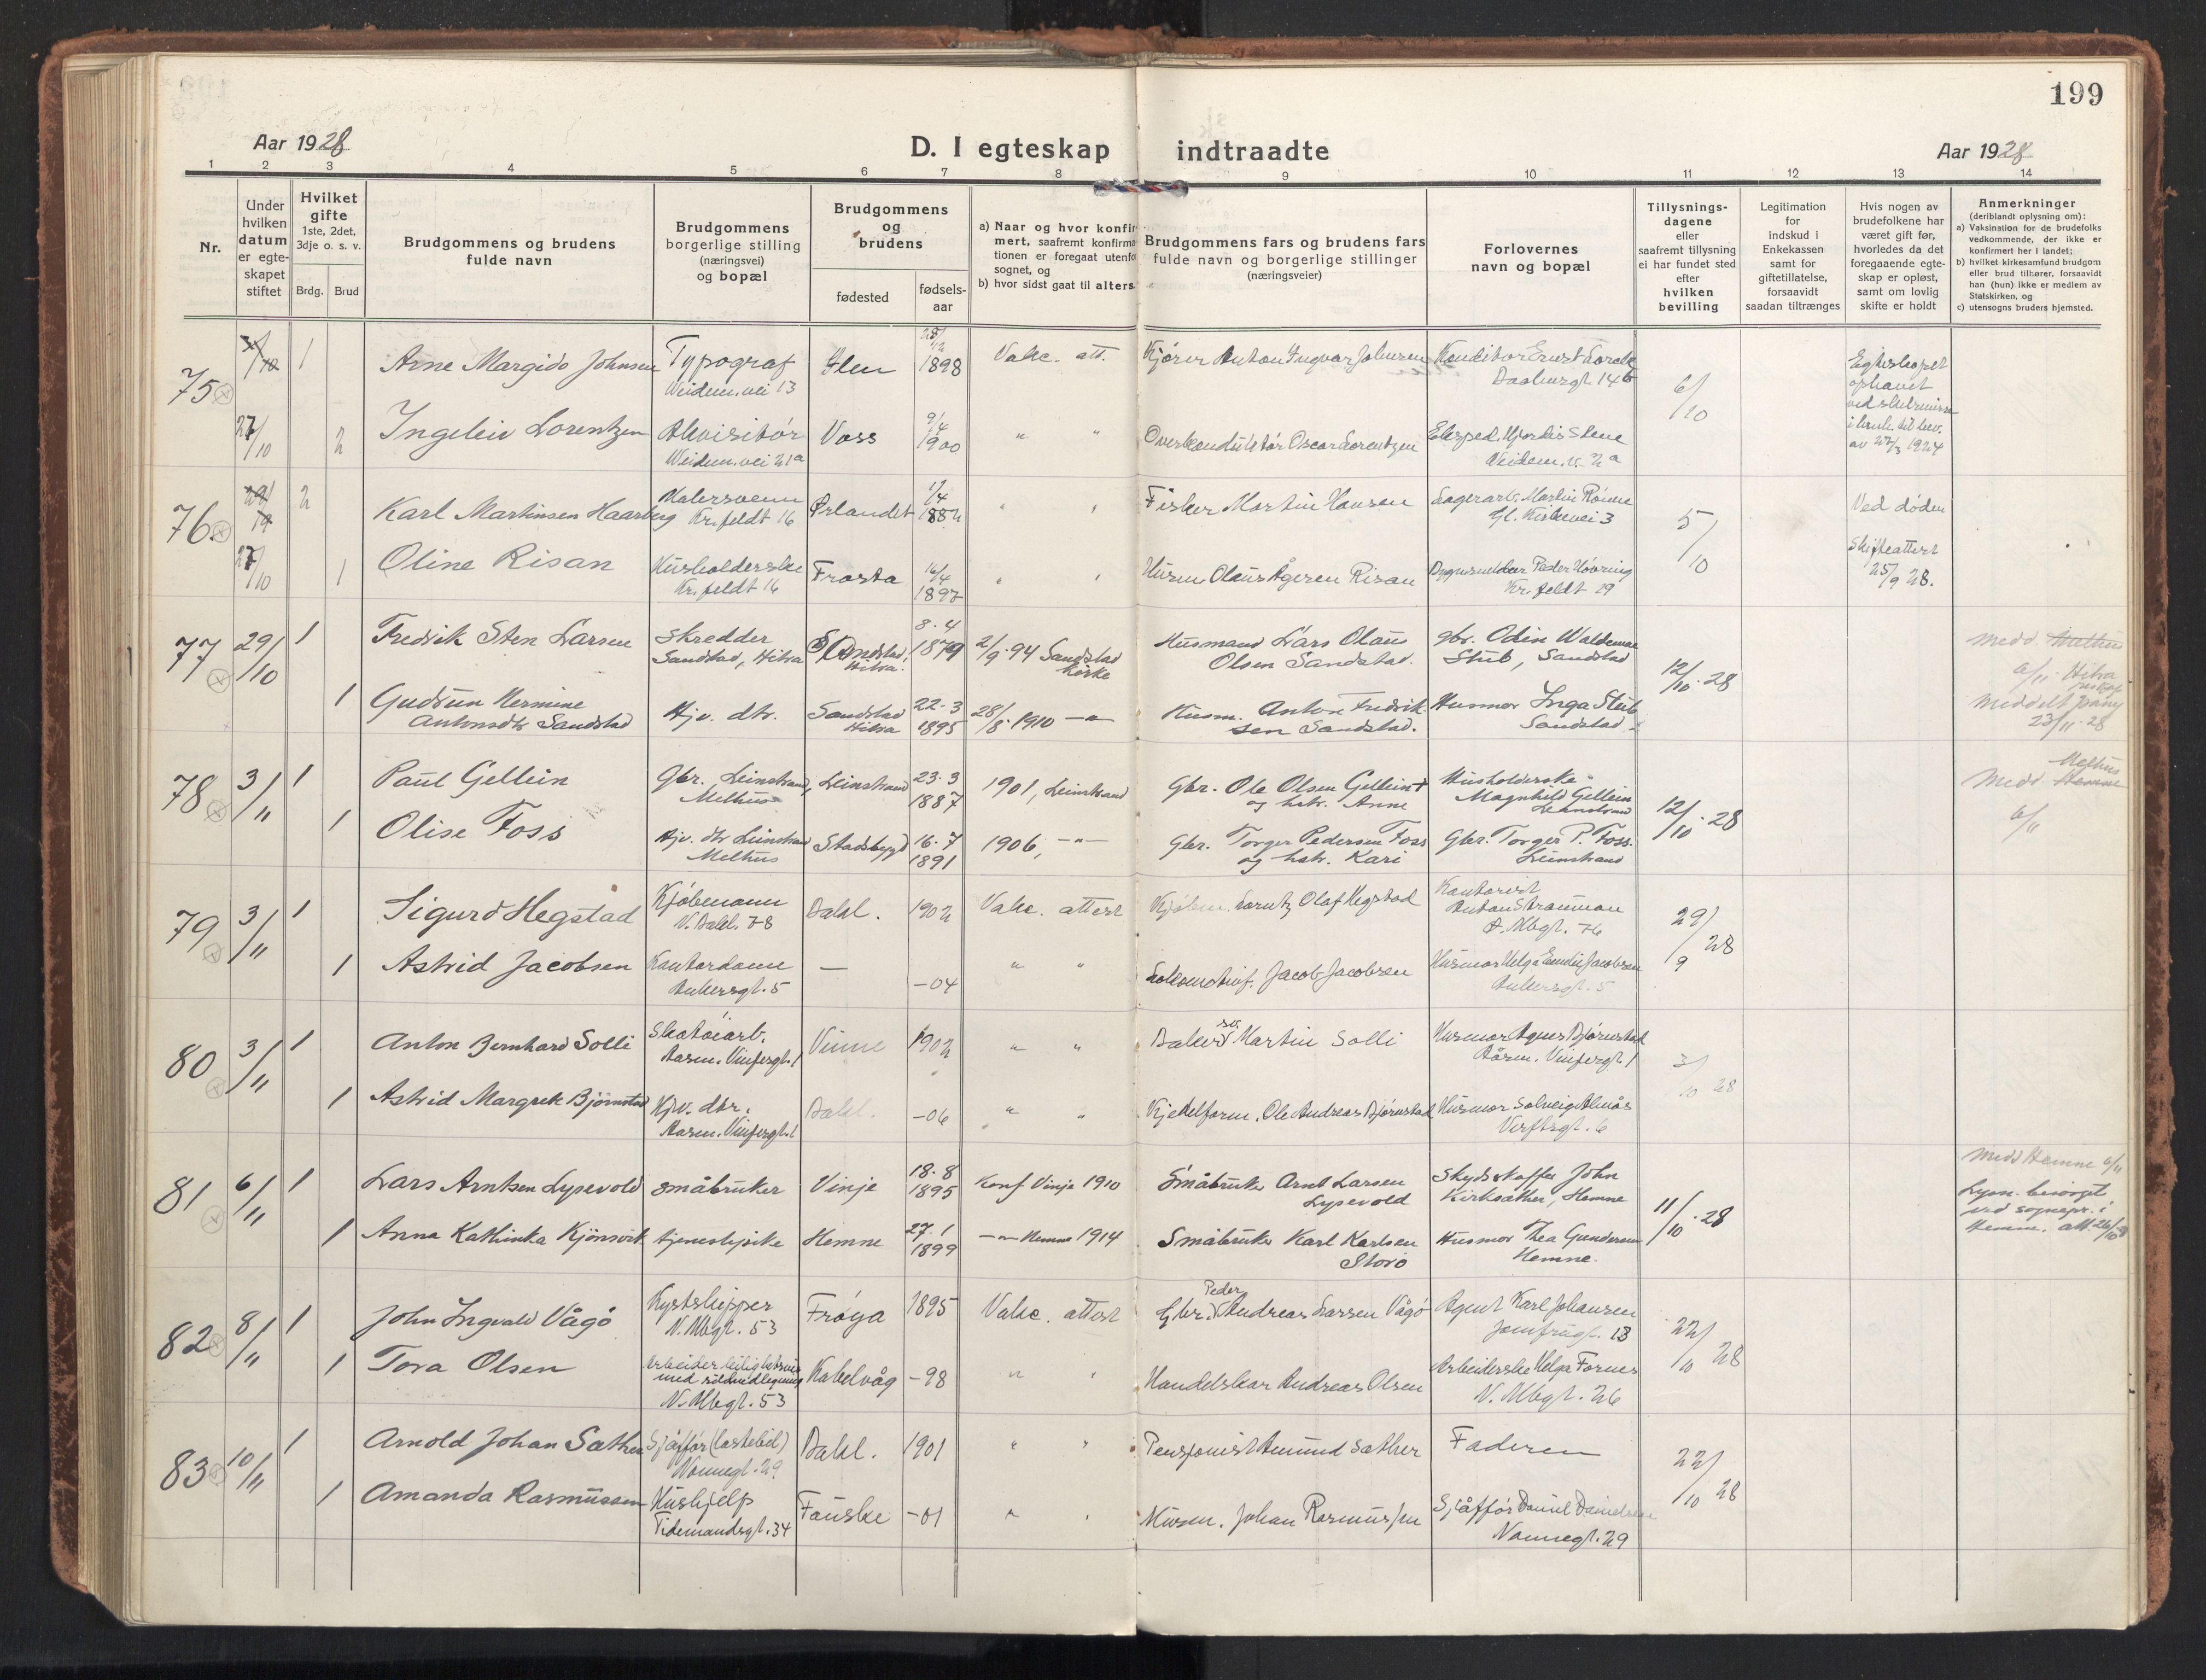 199
Aar 1928
D. I egteskap indtraadte
Aar 1928
1 2 3 4 5 6 7 8 9 10 11 12 13 14
Nr.
Under
hvilken
datum
er egte-
skapet
stiftet
Hvilket
gifte
1ste, 2det,
3dje o. s. v.
Brdg. Brud
Brudgommens og brudens
fulde navn
Brudgommens
borgerlige stilling
(næringsvei)
og bopæl
Brudgommens
og
brudens
fødested
fødsels-
aar
a) Naar og hvor konfir
mert, saafremt konfirma
tionen er foregaat utenfo
sognet, og
b) hvor sidst gaat til alters.
Brudgommens fars og brudens fars
fulde navn og borgerlige stillinger
(næringsveier)
Forlovernes
navn og bopæl
Tillysnings-
dagene
eller
saafremt tillysning
ei har fundet sted
efter
hvilken
bevilling
Legitimation
for
indskud i
Enkekassen
samt for
giftetillatelse,
forsaavidt
saadan tiltrænges
Hvis nogen av
brudefolkene har
været gift før,
hvorledes da det
foregaaende egte-
skap er opløst,
samt om lovlig
skifte er holdt
Anmerkninger
(deriblandt oplysning om):
a) Vaksination for de brudefolks
vedkommende, der ikke er
konfirmert her i landet;
b) hvilket kirkesamfund brudgom
eller brud tilhører, forsaavidt
han (hun) ikke er medlem av
Statskirken, og
c) utensogns bruders hjemsted.
75
1 Arne Margido Johnsen Typograf
Veidem.vei 13
Ilen 1898 Vakc. att.
Kjører Anton Ingvar Johnsen
6/10
Egteskapet
ophævet
27/10 2 Ingeleiv Lorentzen Akvisitør
Veidem.vei 21a
Voss 9/4 1900 " "
Overkonduktør Oscar Lorentzen
Eksped. Hjordis Stene
Veidem.v. 2a
76
2 Karl Martinsen Haarberg Malersvenn
Kr.feldt 16
Ørlandet 17/4 1882 " "
Fisker Martin Hansen
Lagerarb. Martin Rønne
Gl. Kirkevei 3
5/10
Ved døden
27/10 1 Oline Risan Husholderske
Kr.feldt 16
Frosta 16/4 1897 " "
Olaus Ågeren Risan
Kr.feldt 19
Skifteattest
25/9 28.
77 29/10 1 Fredrik Sten Larsen skredder
Sandstad, Hitra
Sandstad, Hitra 8.4 1879 2/9.94 Sandstad
kirke
Husmand Lars Olaus
Olsen Sandstad.
gbr. Odin Waldemar
Stub, Sandstad
12/10.28
1 Gudrun Hermine
Antonsdtr Sandstad
Hjv. dtr. Sandstad
Hitra
22.3 1895 28/8.1910 —"—
Husm. Anton Fredrik-
sen Sandstad.
Husmor Inga Stub
Sandstad
6/11 Hitra
Meddelt
23/11.28
78 3/11 1 Paul Gellein Gbr. Leinstrand,
Melhus
Leinstrand 23.3 1887 1901, Leinstrand
Gbr. Ole Olsen Gellein +
og hstr. Anne
Husholderske
Magnhild Gellein
Leinstrand
12/10.28
Melhus
Medd. Hemne
6/11
1 Olise Foss Hjv. dtr Leinstrand
Melhus
Stadsbygd 16.7 1891 1906, —"—
Gbr. Torger Pedersen Foss
og hstr. Kari
Gbr. Torger P. Foss.
Leinstrand
79 3/11 1 Sigurd Hegstad Kjøbmann
V. Bakl. 78
Bakl. 1902 Vakc. attest
Kjøbm. Lorntz Olaf Hegstad
Kontorist
29/9 28
1 Astrid Jacobsen Kontordame
Ankersgt. 5
— -04 " "
Lokomotivf. Jacob Jacobsen
Husmor Helga Emilie Jacobsen
Ankersgt. 5
80 3/11 1 Anton Bernhard Solli Skotøiarb.
Aasm. Vinjesgt. 1
Vinne 1902 " "
Baker sv. Martin Solli
Husmor Agnes Bjørnstad
Aasm. Vinjesgt. 1
3/10 28
1 Astrid Margrete Bjørnstad Hjv. dtr.
Aasm. Vinjesgt. 1
Bakl. -06 " "
Kjedelform. Ole Andreas Bjørnstad
Husmor Solveig Almås
Verftsgt. 6
81 6/11 1 Lars Arntsen Lysevold småbruker Vinje 18.8 1895 Konf Vinje 1910
Småbruker Arnt Larsen
Lysevold
Skydsskaffer John
Kirksæther, Hemne
11/10.28
Medd Hemne 6/11
Lysn. besørget
ved sognepr. i
Hemne. att. 26/10 28
1 Anna Kathinka Kjønsvik tjenestepike Hemne 27.1 1899 —"— Hemne 1914
Småbruker Karl Karlsen
Storø
Husmor Thea Gundersen
Hemne.
82 8/11 1 John Ingvald Vågø Kystskipper
N. Mbgt. 53
Frøya 1895 Vakc. attest
Gbr. Peder Andreas Larsen Vågø
Agent Karl Johansen
Jomfrugt. 13
22/10 28
1 Tora Olsen
N. Mbgt. 53
Kabelvåg -98 " "
Handelskar Andreas Olsen
Arbeiderske Helga Fornes
N. Mbgt. 26
83 10/11 1 Arnold Johan Sæther Sjåffør (lastebil)
Nonnegt. 29
Bakl. 1901 " "
Pensjonist Amund Sæther
Faderen
22/10 28
1 Amanda Rasmussen Hushjelp
Tidemandsgt. 34
Fauske -01 " "
Johan Rasmussen
Sjåffør Daniel Danielsen
Nonnegt. 29